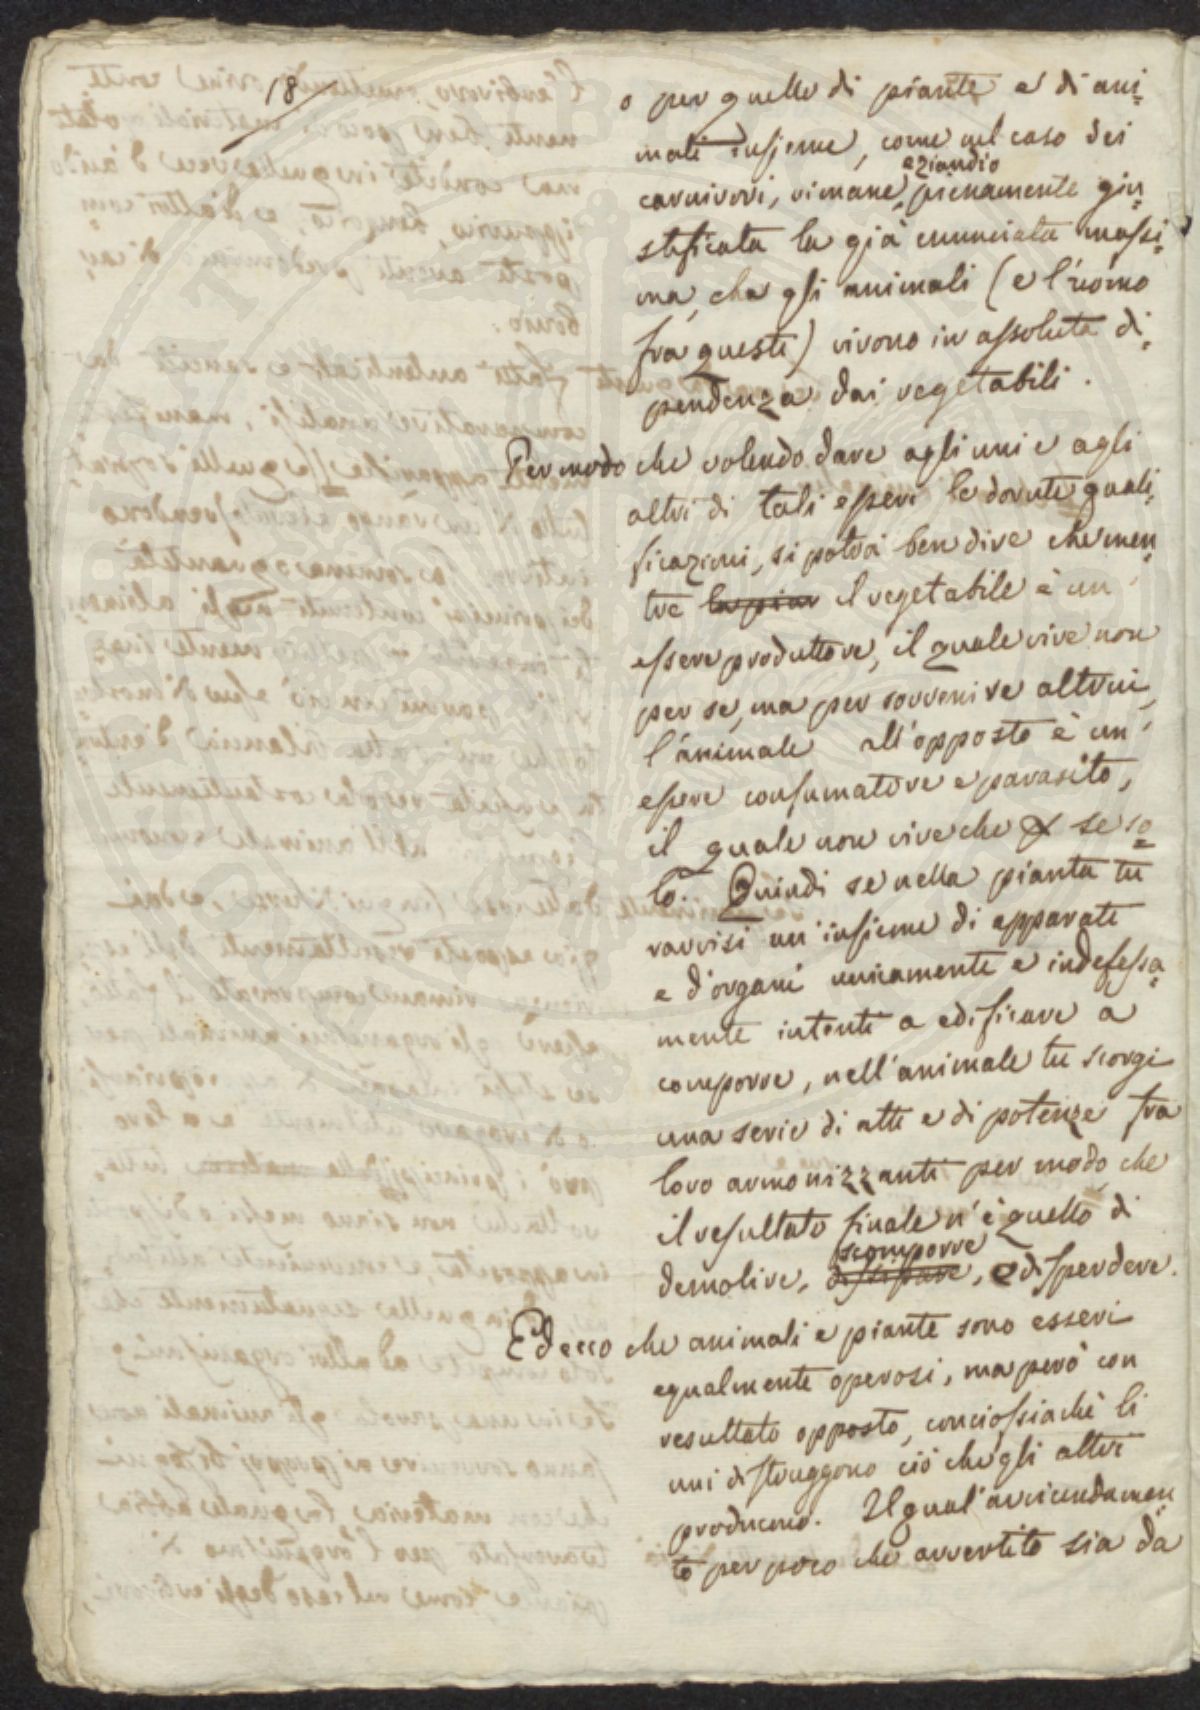 18
o per quello di piante e di ani=
mali insieme, come nel caso dei
eziandio
carnivori, rimane, pienamente giu=
stificata la già enunciata massi=
ma, che gli animali (e l'uomo
fra questi) vivono in assoluta di=
pendenza dai vegetabili.
Per modo che volendo dare agli uni e agli
altri di tali esseri le dovute quali=
ficazioni, si potrà ben dire che men=
tre la pian il vegetabile è un'
essere produttore, il quale vive non
per se, ma per sovvenire altrui,
l'animale all'opposto è un'
essere consumatore e parasito,
il quale non vive che se so=
lo. Quindi se nella pianta tu
ravvisi un'insieme di apparati
e d'organi unicamente e indefessa=
mente intenti a edificare a
comporre, nell'animale tu scorgi
una serie di atti e di potenze fra
loro armonizzanti per modo, che
il resultato finale n'è quello di
scomporre
demolire, dissipare, e disperdere.
Ed ecco che animali e piante sono esseri
egualmente operosi, ma però con
resultato opposto, conciossiachè li
uni distruggono ciò che gli altri
producono. Il qual'avvicendamen=
to per poco che avvertito sia da